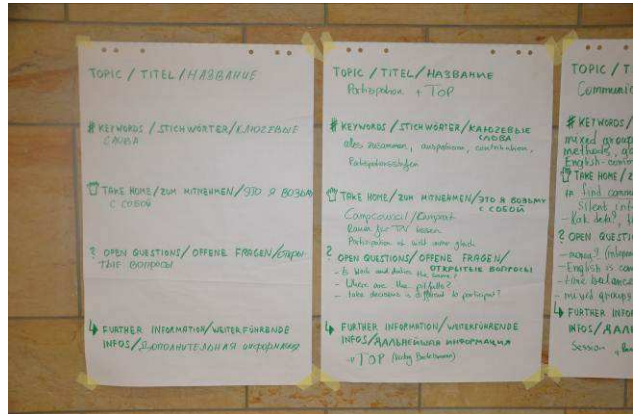 TOPIC / TITEL / НАЗВАНИЕ
# KEYWORDS / STICHWÖRTER / КЛЮЗЕВЫЕ
СЛОВА
TAKE HOME / ZUM MITNEHMEN / ЭТО Я ВОЗЬМУ
С СОБОЙ
? OPEN QUESTIONS / OFFENE FRAGEN /
ТЫЕ ВОПРОСЫ
↳ FURTHER INFORMATION / WEITERFÜHRENDE
INFOS /
TOPIC / TITEL / НАЗВАНИЕ
Partizipation + TOP
# KEYWORDS / STICHWÖRTER / КЛЮЗЕВЫЕ
СЛОВА
alles zusammen, contribution,
Partizipationsstufen
TAKE HOME / ZUM MITNEHMEN / ЭТО Я ВОЗЬМУ
С СОБОЙ
Campcouncil / Camprat
Raum für TN lassen
Partizipation ist nicht immer gleich
? OPEN QUESTIONS / OFFENE FRAGEN /
ОТКРЫТЫЕ ВОПРОСЫ
- Is the same?
- Where are the pitfalls?
- take decisions is different to participat?
↳ FURTHER INFORMATION / WEITERFÜHRENDE
INFOS / ДАЛЬНЕЙШАЯ ИНФОРМАЦИЯ
→ TOP
TOPIC / T
Communic
# KEYWORDS /
mixed group
methods,
English-comm
TAKE HOME / Z
find comm
Silent
? OPEN QUESTI
- money?
- English is com
- take balance
- mixed groups
↳ FURTHER INFOR
INFOS / ДАЛЬ
Session